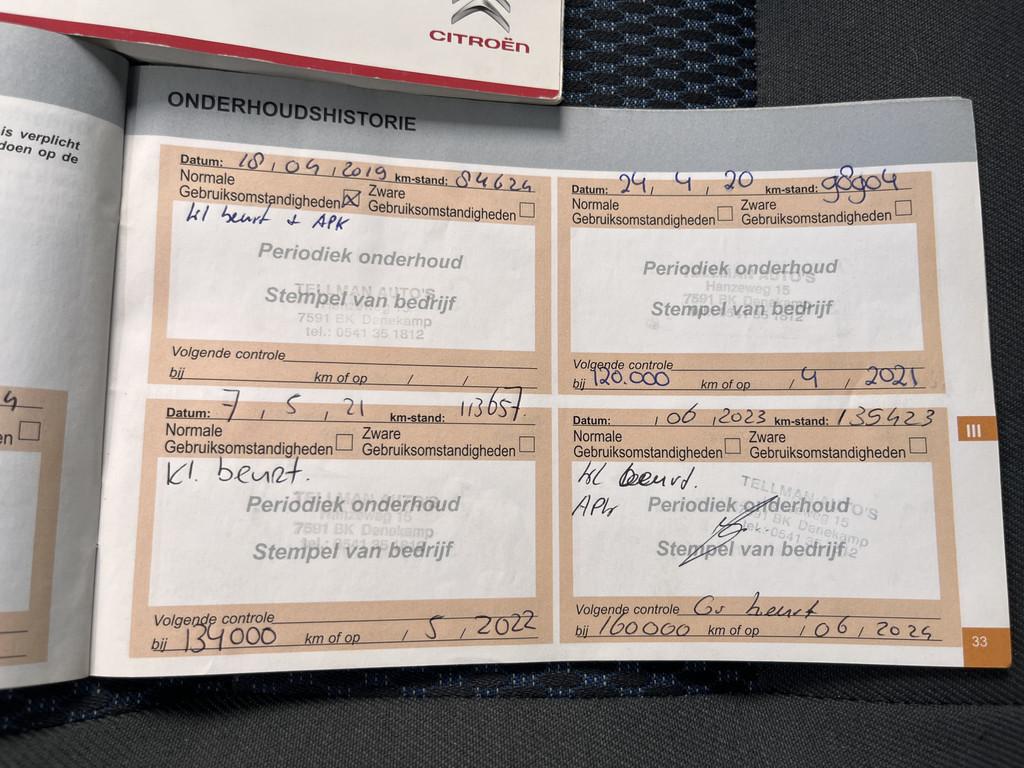 CITROËN
is verplicht
doen op de
ONDERHOUDSHISTORIE
Datum: 18, 04, 2019 km-stand: 84624
Normale
Gebruiksomstandigheden ☒ Zware
Gebruiksomstandigheden ☐
kl beurt + APK
Periodiek onderhoud
TELLMAN AUTO'S
Stempel van bedrijf
Hanzeweg 15
7591 BK Denekamp
tel.: 0541 35 1812
Volgende controle
bij km of op / /
Datum: 24, 4, 20 km-stand: 98904
Normale
Gebruiksomstandigheden ☐ Zware
Gebruiksomstandigheden ☐
Periodiek onderhoud
TELLMAN AUTO'S
Hanzeweg 15
7591 BK Denekamp
Stempel van bedrijf
Volgende controle
bij 120.000 km of op / 4 / 2021
Datum: 7, 5, 21 km-stand: 113657.
Normale
Gebruiksomstandigheden ☐ Zware
Gebruiksomstandigheden ☐
Kl. beurt.
Periodiek onderhoud
TELLMAN AUTO'S
Hanzeweg 15
7591 BK Denekamp
Stempel van bedrijf
Volgende controle
bij 134000 km of op / 5, 2022
Datum: , 06, 2023 km-stand: 135423
Normale
Gebruiksomstandigheden ☐ Zware
Gebruiksomstandigheden ☐
Kl beurt.
APK
Periodiek onderhoud
TELLMAN AUTO'S
BK Denekamp
tel.:0541 35
Stempel van bedrijf
Volgende controle Gr beurt
bij 160000 km of op , 06, 2024
III
33